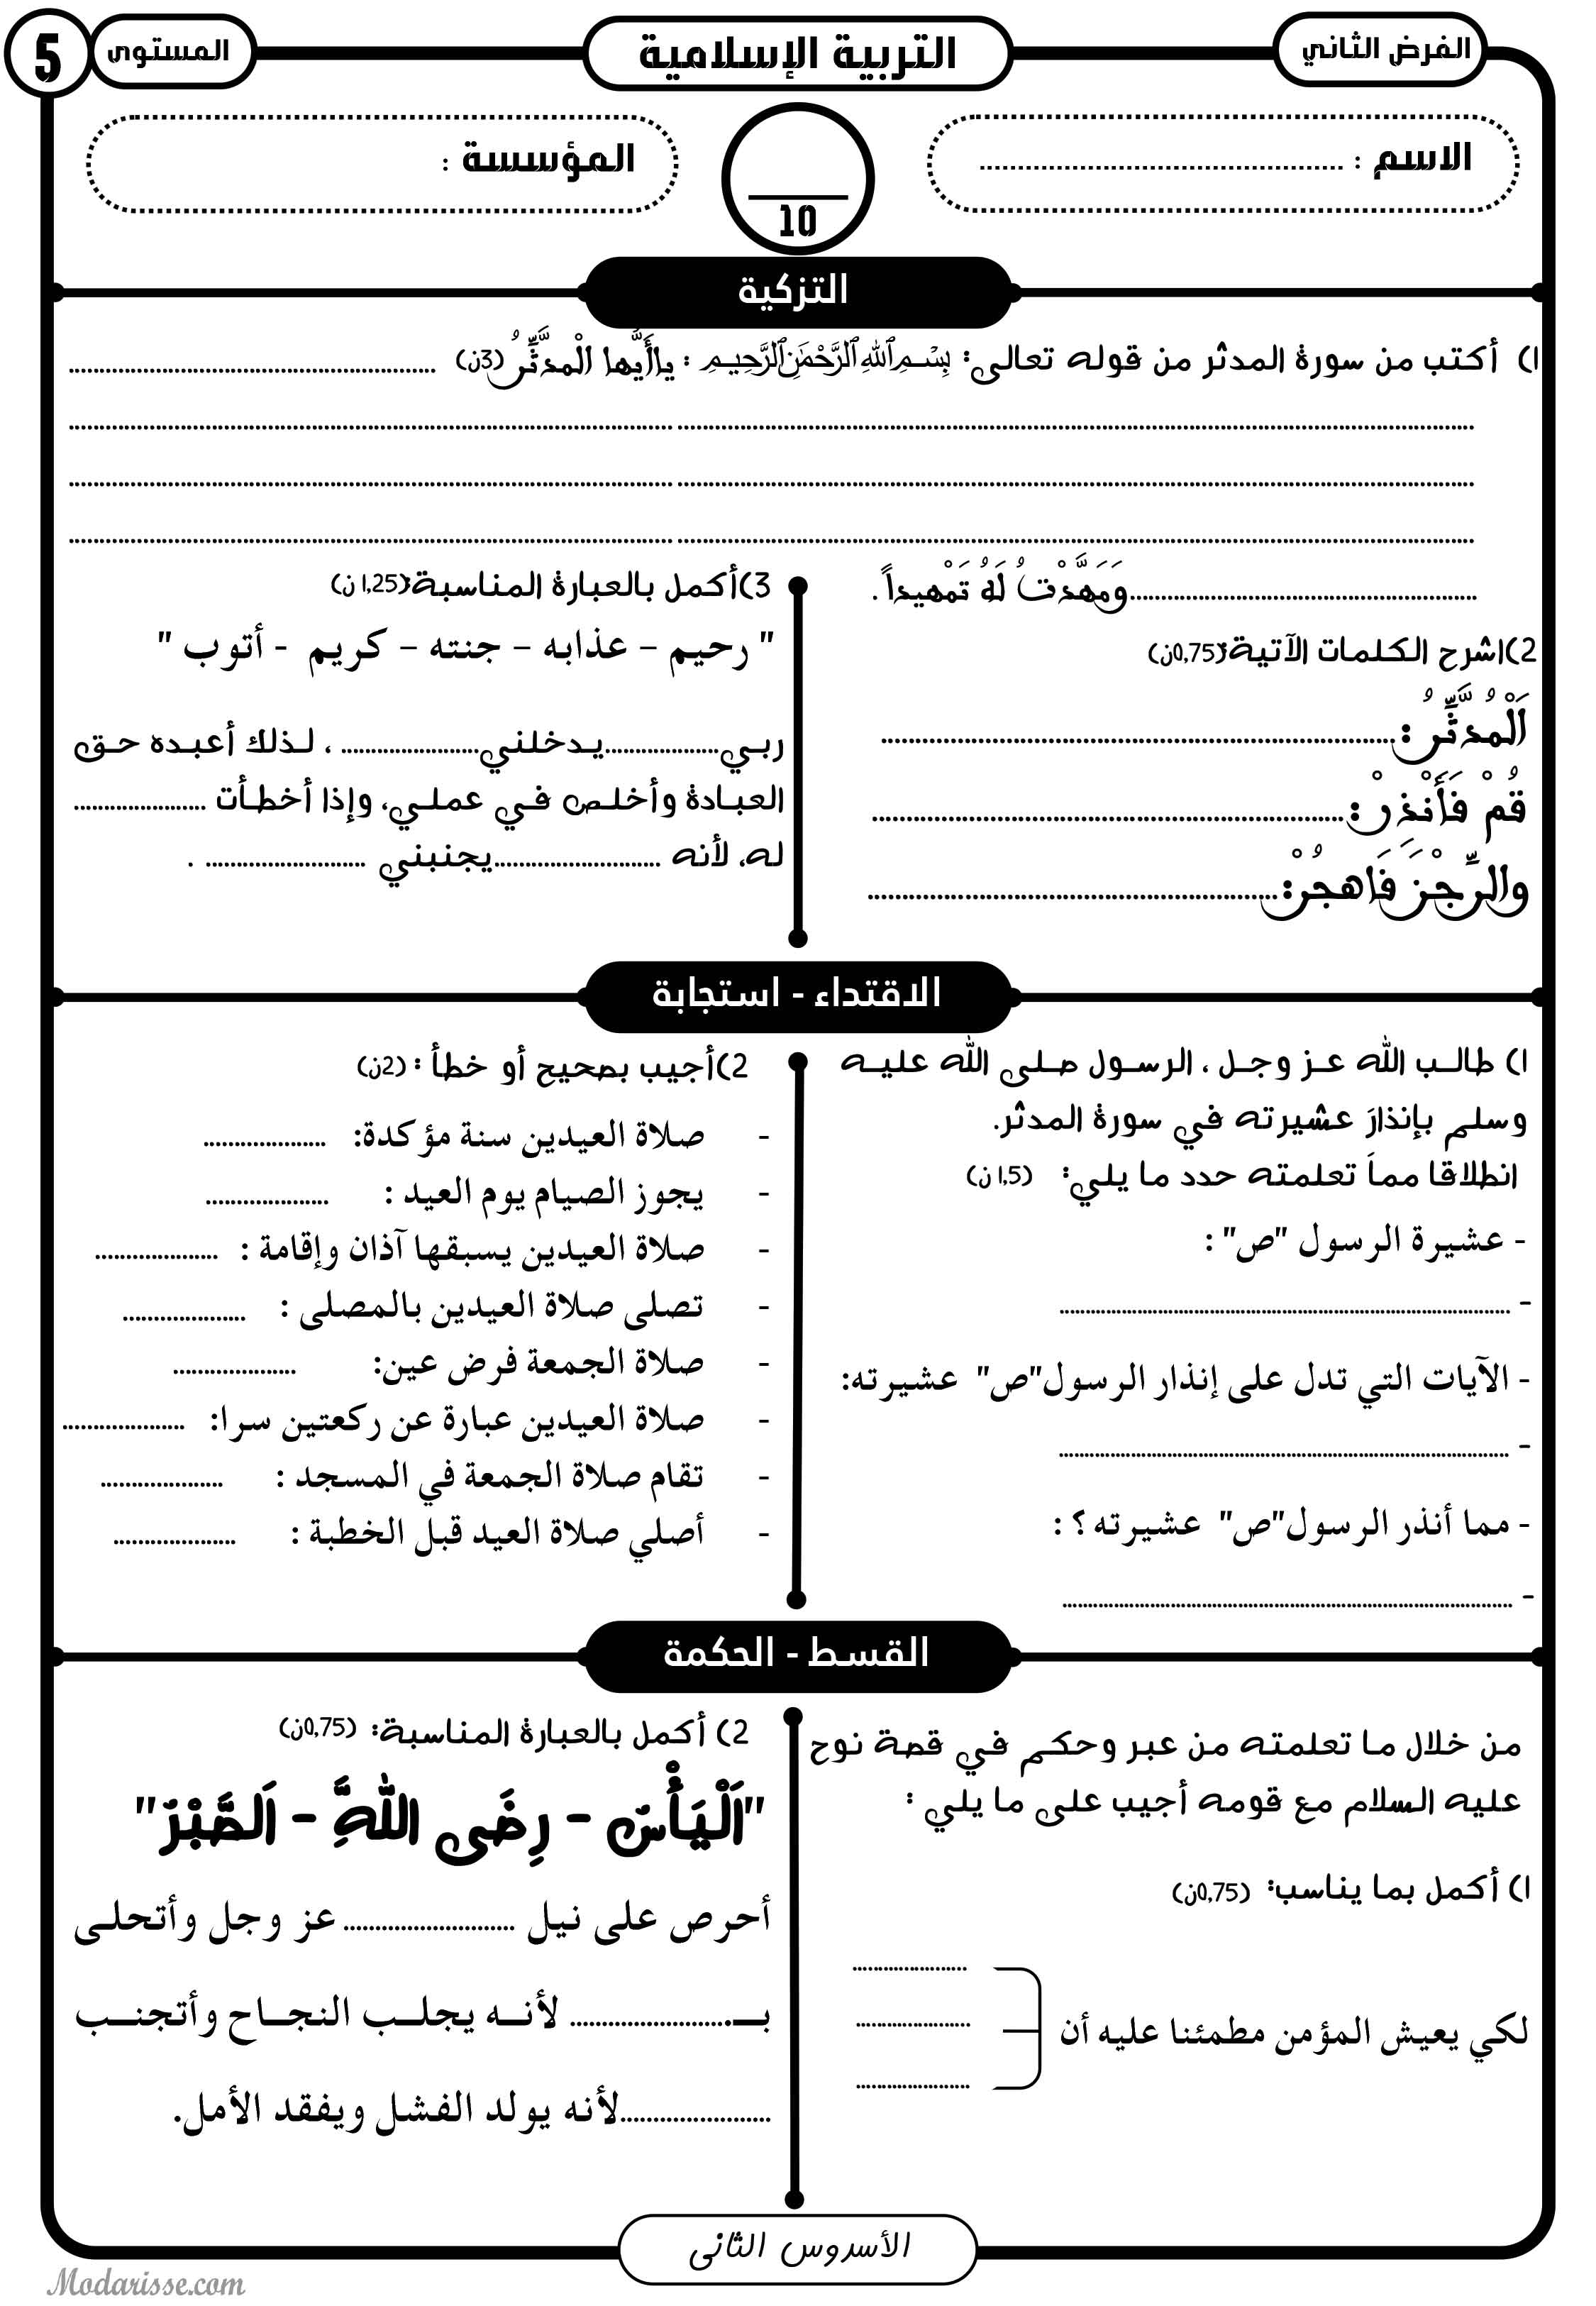 الفرض الثاني
التربية الإسلامية
المستوى
5
الاسم : ................................
المؤسسة :
10
التزكية
1) أكتب من سورة المدثر من قوله تعالى: بِسْمِ اللَّهِ الرَّحْمَٰنِ الرَّحِيمِ : يَاأَيُّها الْمدَّثِّرُ (3ن) ................................
................................................................
................................................................
................................................................
................................وَمَهَّدْتُ لَهُ تَمْهِيداً .
2)اشرح الكلمات الآتية:(0,75ن)
اَلْمُدَّثِّرُ:................................
قُمْ فَأَنْذِرْ:................................
والرِّجْزَ فَاهجُرْ:................................
3)أكمل بالعبارة المناسبة:(1,25 ن)
" رحيم – عذابه – جنته – كريم - أتوب "
ربي...................يدخلني....................... ، لذلك أعبده حق
العبادة وأخلص في عملي، وإذا أخطأت ......................
له، لأنه ............................يجنبني ........................... .
الاقتداء - استجابة
1) طالب الله عز وجل ، الرسول صلى الله عليه
وسلم بإنذار عشيرته في سورة المدثر.
انطلاقا مما تعلمته حدد ما يلي: (1,5 ن)
- عشيرة الرسول "ص" :
- ................................
- الآيات التي تدل على إنذار الرسول"ص" عشيرته:
- ................................
- مما أنذر الرسول"ص" عشيرته ؟ :
- ................................
2)أجيب بصحيح أو خطأ : (2ن)
- صلاة العيدين سنة مؤكدة: ....................
- يجوز الصيام يوم العيد : ....................
- صلاة العيدين يسبقها آذان وإقامة : ....................
- تصلى صلاة العيدين بالمصلى : ....................
- صلاة الجمعة فرض عين: ....................
- صلاة العيدين عبارة عن ركعتين سرا: ....................
- تقام صلاة الجمعة في المسجد : ....................
- أصلي صلاة العيد قبل الخطبة : ....................
القسط - الحكمة
من خلال ما تعلمته من عبر وحكم في قصة نوح
عليه السلام مع قومه أجيب على ما يلي :
1) أكمل بما يناسب: (0,75ن)
....................
لكي يعيش المؤمن مطمئنا عليه أن ....................
....................
2) أكمل بالعبارة المناسبة: (0,75ن)
"اَلْيَأْسَ - رِضَى اللَّهِ - اَلصَّبْرْ"
أحرص على نيل ............................ عز وجل وأتحلى
بـ......................... لأنه يجلب النجاح وأتجنب
.........................لأنه يولد الفشل ويفقد الأمل.
الأسدوس الثاني
Modarisse.com